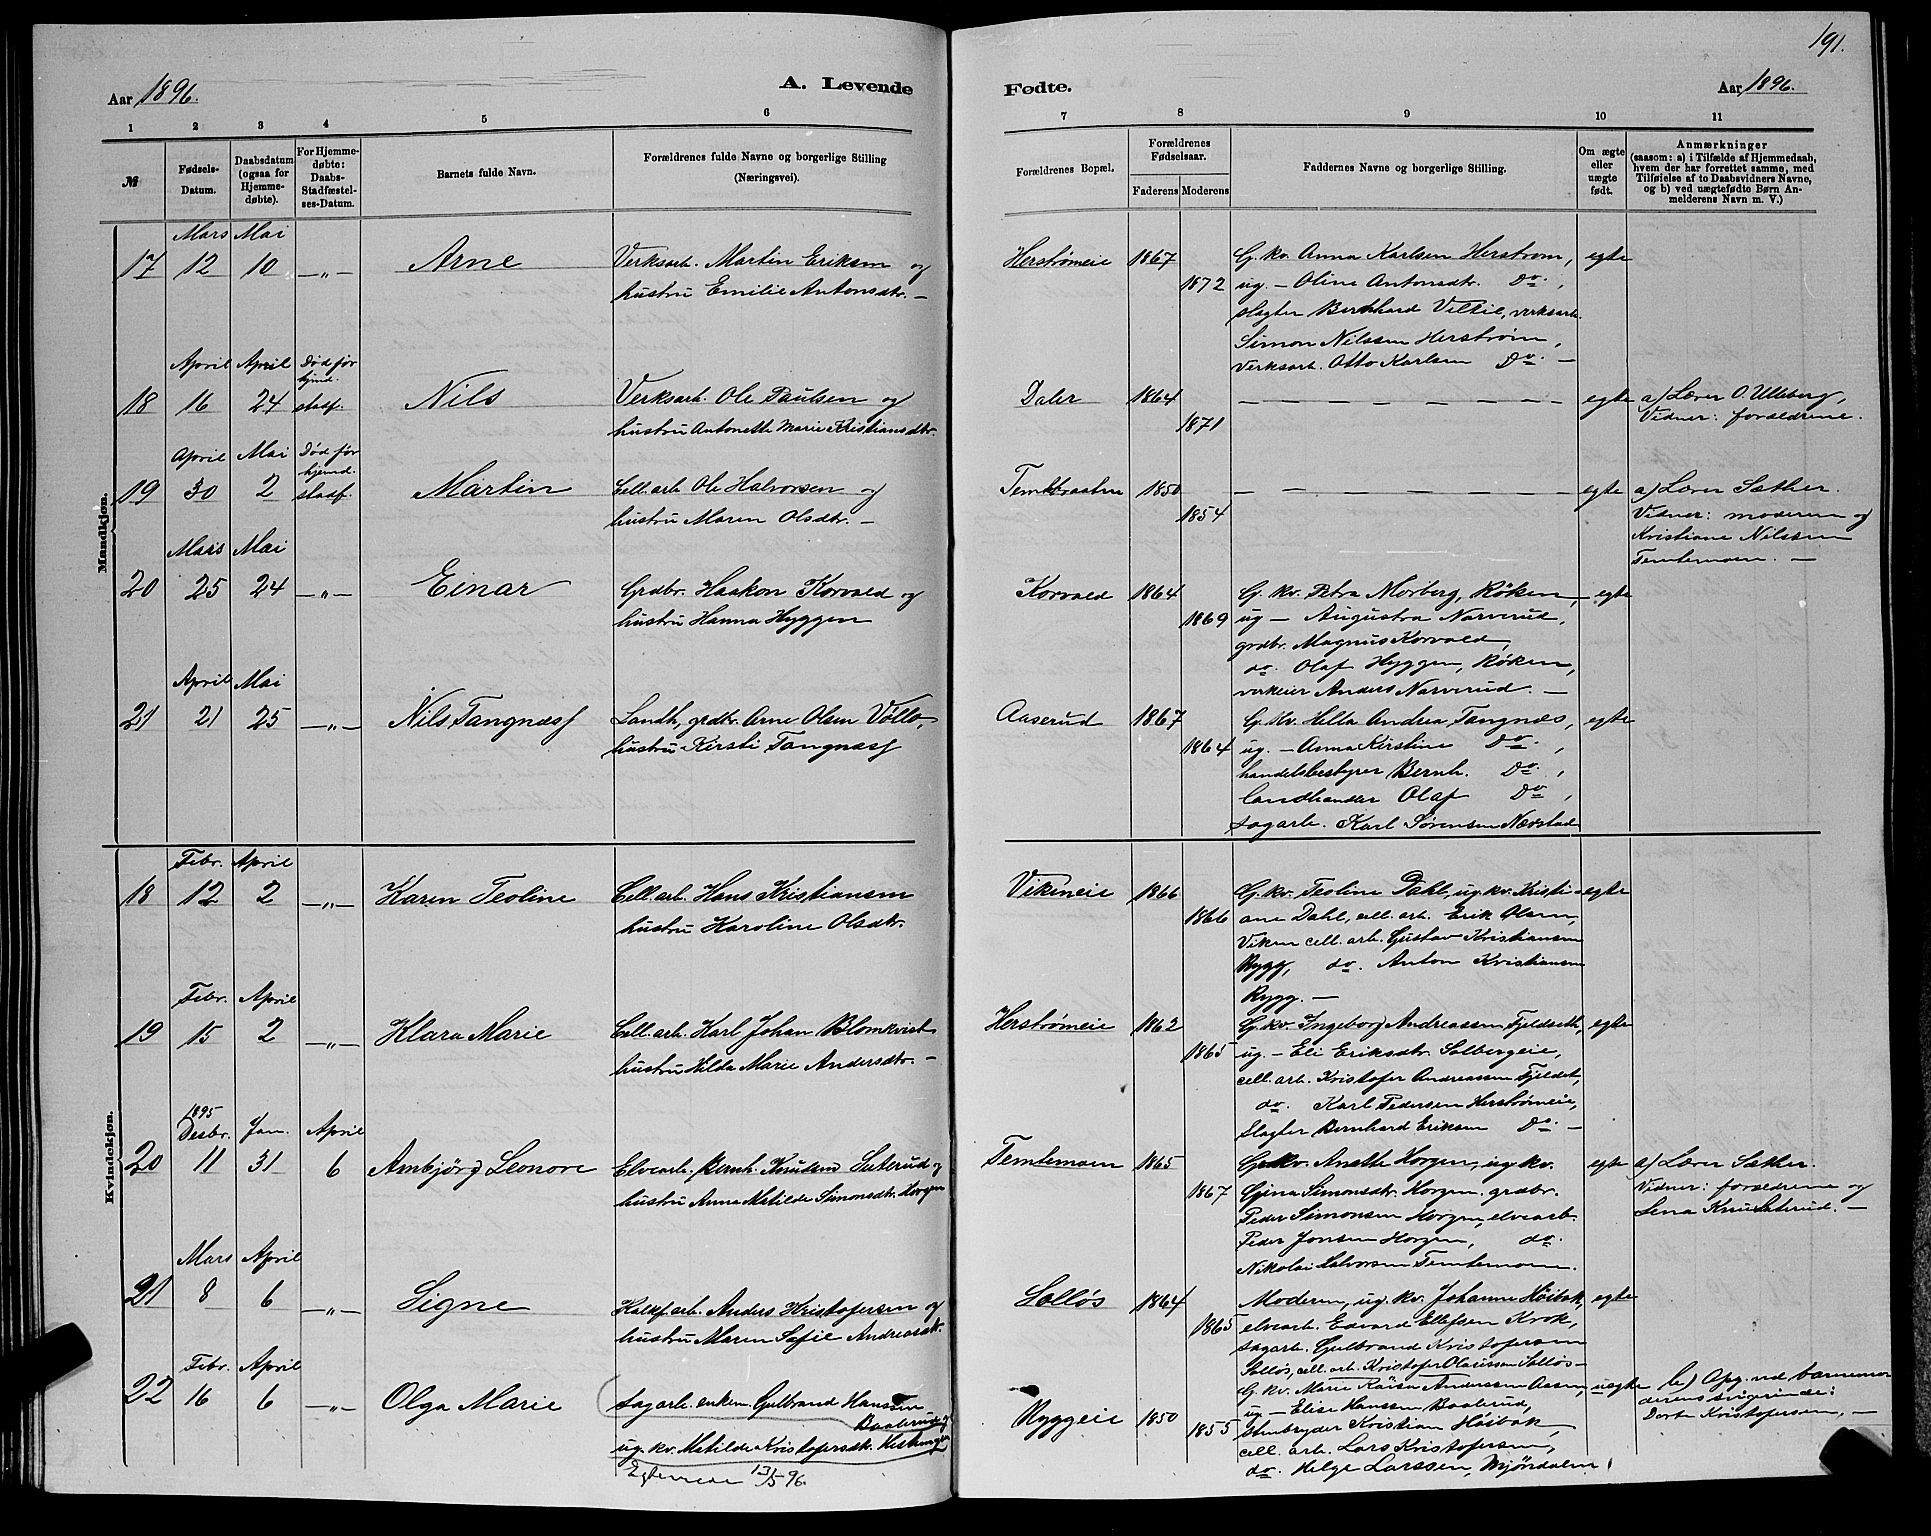 191.
Aar 1896. A. Levende Fødte. Aar 1896.
1 2 3 4 5 6 7 8 9 10 11
№
Fødsels-Datum.
Daabsdatum (ogsaa for Hjemme-døbte).
For Hjemme-døbte: Daabs-Stadfæstel-ses-Datum.
Barnets fulde Navn.
Forældrenes fulde Navne og borgerlige Stilling (Næringsvei).
Forældrenes Bopæl.
Forældrenes Fødselsaar.
Faderens Moderens
Faddernes Navne og borgerlige Stilling.
Om ægte eller uægte født.
Anmærkninger
(saasom: a) i Tilfælde af Hjemmedaab, hvem der har forrettet samme, med Tilføielse af to Daabsvidners Navne, og b) ved uægtefødte Børn An-melderens Navn m. V.)
Mandkjøn.
Mars Mai
17 12 10 —„— Arne
Verksarb. Martin Eriksen og
hustru Emilie Antonsdtr. —
Herstrømeie 1867 1872
G. kv. Anna Karlsen Herstrøm,
ug. — Oline Antonsdtr. Do.,
slagter Bernhard Viltie, verksarb.
Simon Nilssen Herstrøm,
Verksarb. Otto Karlsen Do. —
egte
April April Død før hjemd.
18 16 24 stadf. Nils
Verksarb. Ole Paulsen og
hustru Antonette Marie Kristiansdtr.
Daler 1864 1871
— — — — — — — —
egte
a) Lærer O. Ulleberg,
Vidner: forældrene.
April Mai Død før hjemd.
19 30 2 stadf. Martin
Cell. arb. Ole Halvorsen og
hustru Maren Olsdtr. —
Temtebraaten 1850 1854
— — — — — — — —
egte
a) Lærer Sæther.
Vidner: moderen og
Kristiane Nilssen
Temtemoen. —
Mars Mai
20 25 24 —„— Einar
Grdbr. Haakon Korvald og
hustru Hanna Hyggen
Korvald 1864 1869
G. kv. Petra Morberg, Røken,
ug — Augustra Narverud,
grdbr. Magnus Korvald,
do. Olaf Hyggen, Røken,
verkeier Anders Narverud. —
egte
April Mai
21 21 25 —„— Nils Tangnæss
Landh., grdbr. Arne Olsen Vøllo,
hustru Kirsti Tangnæss
Aaserud 1867 1864
G. kv. Hilda Andrea Tangnæs,
ug. — Anna Kirstine Do.,
handelsbestyrer Bernh. Do.,
landhandler Olaf Do.,
sagarb. Karl Sørensen Nævstad
egte
Kvindekjøn.
Febr. April
18 12 2 —„— Karen Teoline
Cell. arb. Hans Kristiansen
hustru Karoline Olsdtr.
Vikeneie 1866 1866
G. kv. Teoline Dahl, ug. kv. Kristi-
ane Dahl, cell. arb. Erik Olsen,
Viken cell. arb. Gustav Kristiansen
Rygg, do. Anton Kristiansen
Rygg. —
egte
Febr. April
19 15 2 —„— Klara Marie
Cell. arb. Karl Johan Blomkvist
hustru Hilda Marie Andersdtr. —
Herstrømeie 1862 1865
G. kv. Ingeborg Andreassen Fjeldseth,
ug. — Eli Eriksdtr. Solbergeie,
cell. arb. Kristofer Andreassen Fjeldet,
do. Karl Pedersen Herstrømeie,
Slagter Bernhard Eriksen Do. —
egte
1895
Desbr. Jan. April
20 11 31 6 Ambjørg Leonore
Elvearb. Bernh. Knudsen Sæterud og
hustru Anna Matilde Simonsdtr. Horgen
Temtemoen 1865 1867
G. kv. Anette Horgen, ug. kv.
Gjina Simonsdtr. Horgen. grdbr.
Peder Simonsen Horgen, elvearb.
Peder Jonsen Horgen, do.
Nikolai Halvorsen Temtemoen.
egte
a) Lærer Sæther.
Vidner: forældrene og
Lena Knu Sæterud. —
Mars April
21 8 6 —„— Signe
Kalkf. arb. Anders Kristofersen og
hustru Maren Sofie Andreasdtr.
Solløs 1864 1865
Moderen, ug. kv. Johanne Høibak,
elvearb. Edvard Ellefsen Krok,
sagarb. Gulbrand Kristofersen
Solløs, cell. arb. Kristofer Olaussen Solløs —
egte
Febr. April
22 16 6 —„— Olga Marie
Sagarb. enkem. Gulbrand Hansen
Baalerud og
ug. kv. Matilde Kristofersdtr.
Egteviede 13/5 96.
Ryggeie 1850 1855
G. kv. Marie Andersen Aasen,
ug — Elise Hanssen Baalerud,
Stenbryder Kristian Høibak,
cell. arb. Lars Kristofersen,
do. Helge Larssen, Mjøndalen
uegte
b) Opg. ved barnemo-
derens svigerinde:
Dorte Kristofersen, —